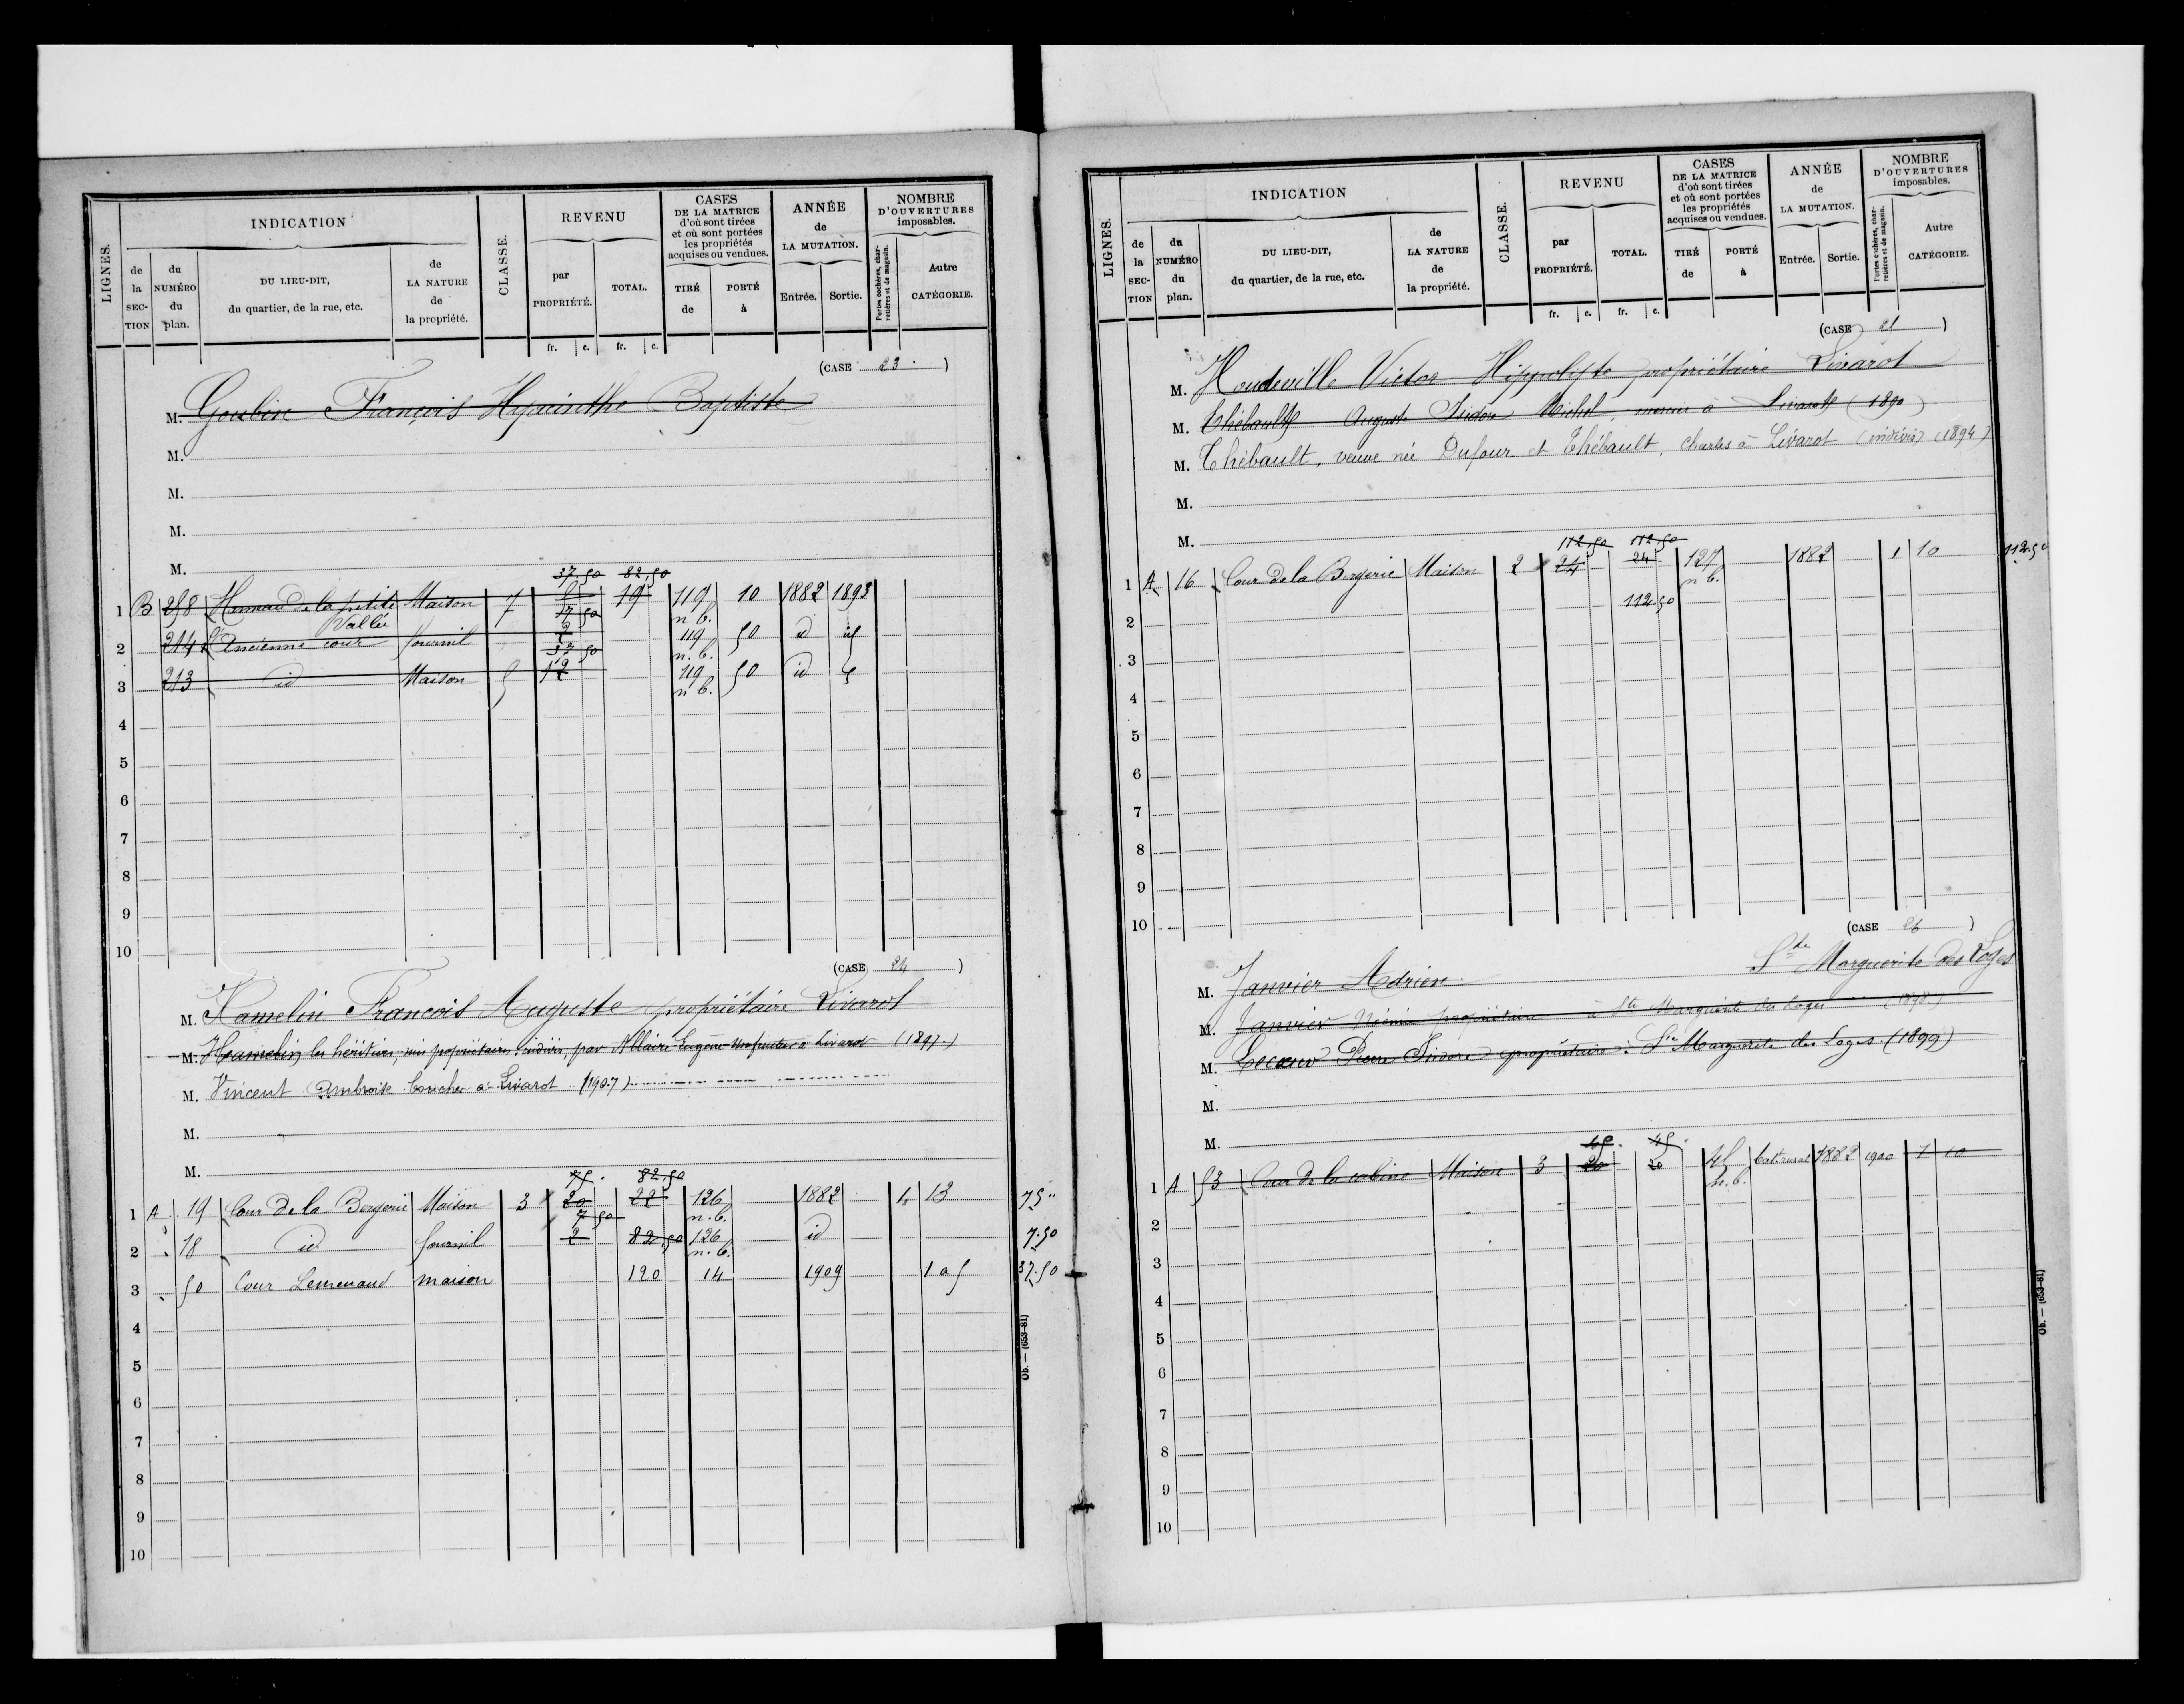 LIGNES.
INDICATION
de la SECTION
du NUMÉRO du plan.
DU LIEU-DIT, du quartier, de la rue, etc.
de LA NATURE de la propriété.
CLASSE.
REVENU
par PROPRIÉTÉ.
TOTAL.
CASES DE LA MATRICE d'où sont tirées et où sont portées les propriétés acquises ou vendues.
TIRÉ de
PORTÉ à
ANNÉE de LA MUTATION.
Entrée.
Sortie.
NOMBRE D'OUVERTURES imposables.
Portes cochères, charretières et de magasin.
Autre CATÉGORIE.
fr. c. fr. c.
(CASE 23.)
M. Goubin François Hyacinthe Baptiste
M.
M.
M.
M.
37.50 82.50
1 B 258 Hameau de la petite Vallée Maison 7 6 19 119 n b. 10 1882 1893
7 50
2 214 L'Ancienne cour fournil 119 n. b. 50 id id
37 50
3 213 id Maison 5 12 119 n b. 50 id
4
5
6
7
8
9
10
(CASE 24)
M. Hamelin François Auguste propriétaire Livarot
M. Hamelin les héritiers, nus propriétaires indivis, par Allaire Eugène Usufruitier à Livarot (1897.)
M. Vincent Ambroise boucher à Livarot (1907)
M.
M.
75. 82.50
1 A 19 Cour de la Bergerie Maison 3 20 22 126 n. b. 1882 1 13 75"
7 50
2 18 id fournil 2 82.50 126 n. b. id 7.50
3 50 Cour Lemenaud maison 120 14 1909 1 a 5 37.50
4
5
6
7
8
9
10
Ob. — (653-81)
LIGNES.
INDICATION
de la SECTION
du NUMÉRO du plan.
DU LIEU-DIT, du quartier, de la rue, etc.
de LA NATURE de la propriété.
CLASSE.
REVENU
par PROPRIÉTÉ.
TOTAL.
CASES DE LA MATRICE d'où sont tirées et où sont portées les propriétés acquises ou vendues.
TIRÉ de
PORTÉ à
ANNÉE de LA MUTATION.
Entrée.
Sortie.
NOMBRE D'OUVERTURES imposables.
Portes cochères, charretières et de magasin.
Autre CATÉGORIE.
fr. c. fr. c.
(CASE 25)
M. Houdeville Victor Hippolyte propriétaire Livarot
M. Thébault Auguste Isidore Michel mercier à Livarot (1890)
M. Thébault, veuve née Dufour et Thébault, Charles à Livarot (indivis) (1894)
M.
M.
112.50 112.50
1 A 16 Cour de la Bergerie Maison 2 24 24 127 n b. 1882 1 10 112.50
112.50
2
3
4
5
6
7
8
9
10
(CASE 26)
M. Janvier Adrien Ste Marguerite des Loges
M. Janvier Noémie propriétaire à Ste Marguerite des Loges (1898)
M. Pierre Isidore propriétaire à Ste Marguerite des Loges (1899)
M.
M.
45. 45.
1 A 53 Cour de la cabine Maison 3 20 20 45 n. b. Bat. rural 1882 1900 1 10
2
3
4
5
6
7
8
9
10
Ob. — (653-81)